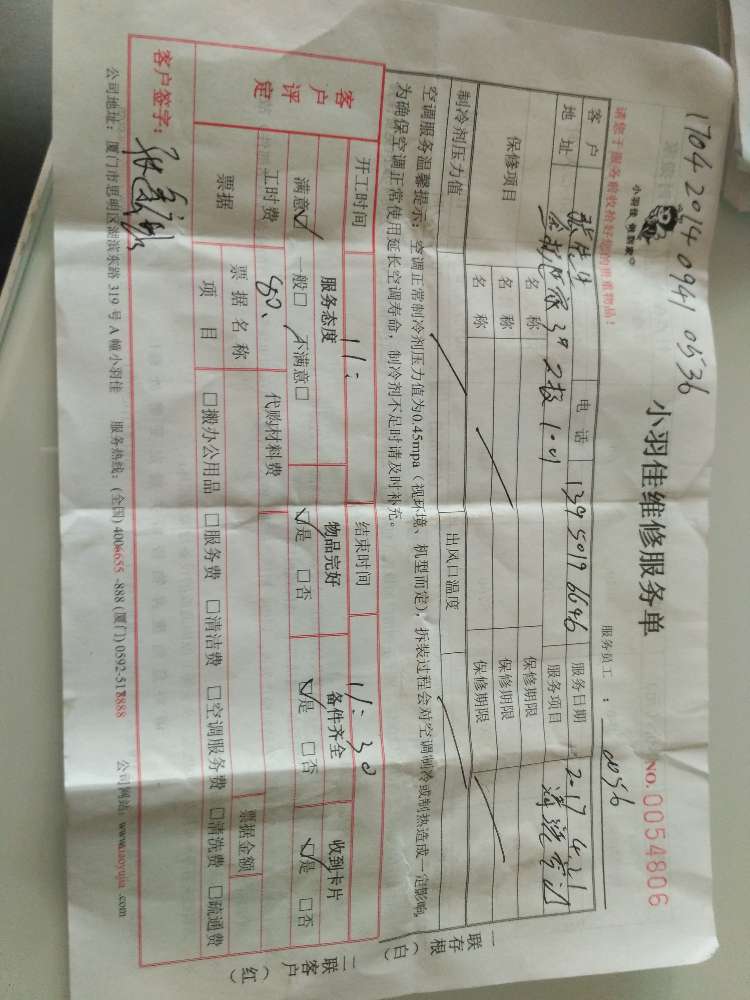 1704 2014 0941 0536
小羽佳 做到家
小羽佳维修服务单
NO. 0054806
请您于服务前收拾好您的贵重物品！
服务员工：
客户
电话 139 5019 6646
服务日期 2017 4.21
地址
服务项目
保修项目
名称
保修期限
名称
保修期限
名称
保修期限
制冷剂压力值
出风口温度
空调服务温馨提示：空调正常制冷剂压力值为0.45mpa（视环境、机型而定），拆装过程会对空调制冷或制热造成一定影响，
为确保空调正常使用延长空调寿命，制冷剂不足时请及时补充。
一联存根（白）
开工时间 11:
结束时间 11:30
客户评定
服务态度
物品完好
备件齐全
收到卡片
满意☑ 一般□ 不满意□
☑是 □否
☑是 □否
☑是 □否
工时费 80、
代购材料费
票据
票据名称
票据金额
项目
□搬办公用品 □服务费 □清洁费 □空调服务费 □清洗费 □疏通费
二联客户（红）
客户签字：
公司地址：厦门市思明区湖滨东路 319 号 A 幢小羽佳 服务热线：(全国) 4006655 -888 (厦门) 0592-5178888 公司网站：www.xiaoyujia .com